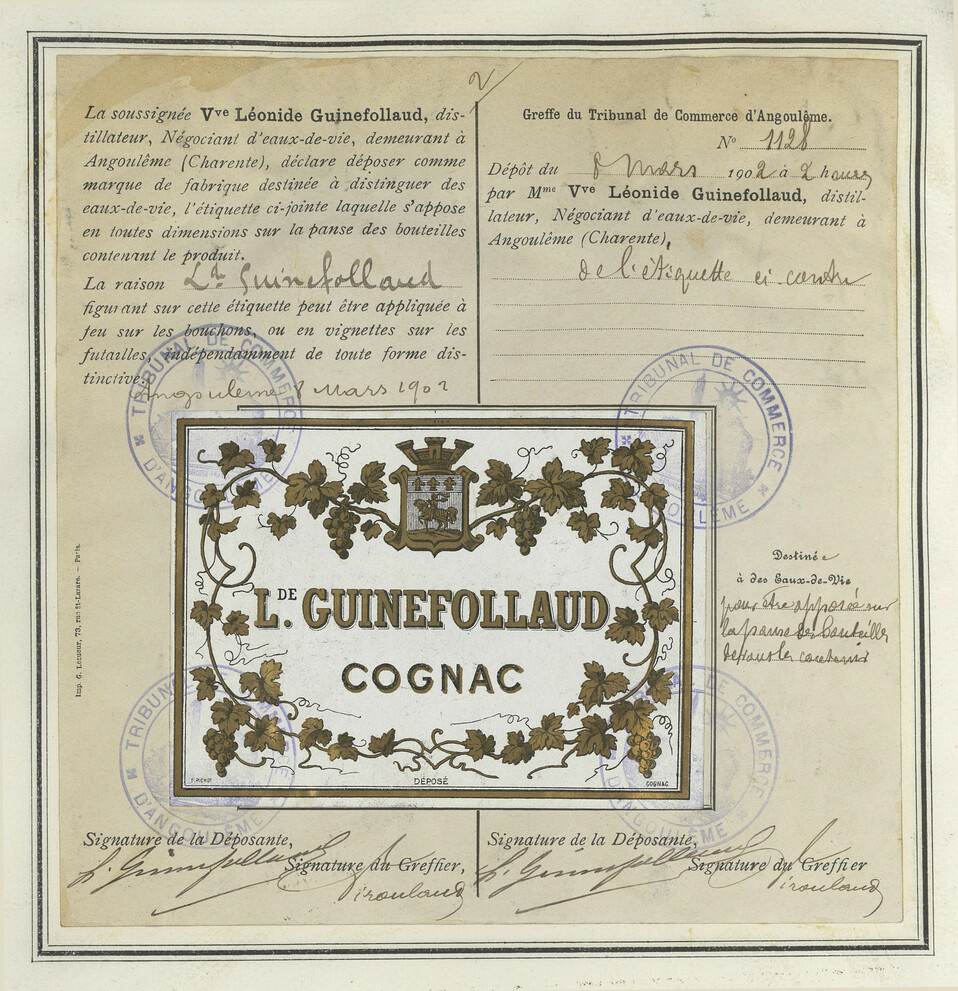 2
La soussignée Vve Léonide Guinefollaud, dis-
tillateur, Négociant d'eaux-de-vie, demeurant à
Angoulême (Charente), déclare déposer comme
marque de fabrique destinée à distinguer des
eaux-de-vie, l'étiquette ci-jointe laquelle s'appose
en toutes dimensions sur la panse des bouteilles
contenant le produit.
La raison Lde Guinefollaud
figurant sur cette étiquette peut être appliquée à
feu sur les bouchons, ou en vignettes sur les
futailles, indépendamment de toute forme dis-
tinctive.
Angoulême 8 Mars 1902
Greffe du Tribunal de Commerce d'Angoulême.
No 1128
Dépôt du 8 Mars 1902 à 2 heures
par Mme Vve Léonide Guinefollaud, distil-
lateur, Négociant d'eaux-de-vie, demeurant à
Angoulême (Charente),
de l'étiquette ci contre
TRIBUNAL DE COMMERCE D'ANGOULÊME
TRIBUNAL DE COMMERCE D'ANGOULÊME
L. DE GUINEFOLLAUD
COGNAC
F. PICHOT
DÉPOSÉ
COGNAC
Destinée
à des Eaux-de-Vie
pour être apposée sur
la panse des bouteilles
Imp. G. Lesueur, 73, rue St-Lazare. — Paris.
TRIBUNAL DE COMMERCE D'ANGOULÊME
TRIBUNAL DE COMMERCE D'ANGOULÊME
Signature de la Déposante,
L. Guinefollaud
Signature du Greffier,
Signature de la Déposante,
L. Guinefollaud
Signature du Greffier